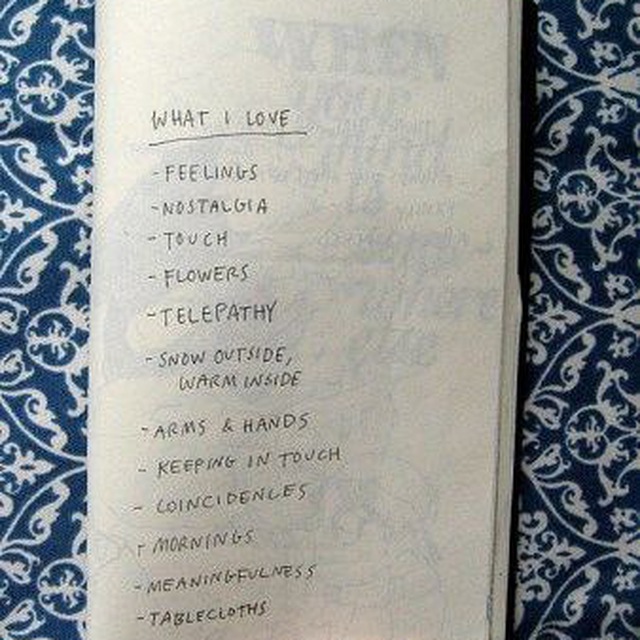 WHAT I LOVE
- FEELINGS
- NOSTALGIA
- TOUCH
- FLOWERS
- TELEPATHY
- SNOW OUTSIDE,
WARM INSIDE
- ARMS & HANDS
- KEEPING IN TOUCH
- COINCIDENCES
- MORNINGS
- MEANINGFULNESS
- TABLECLOTHS